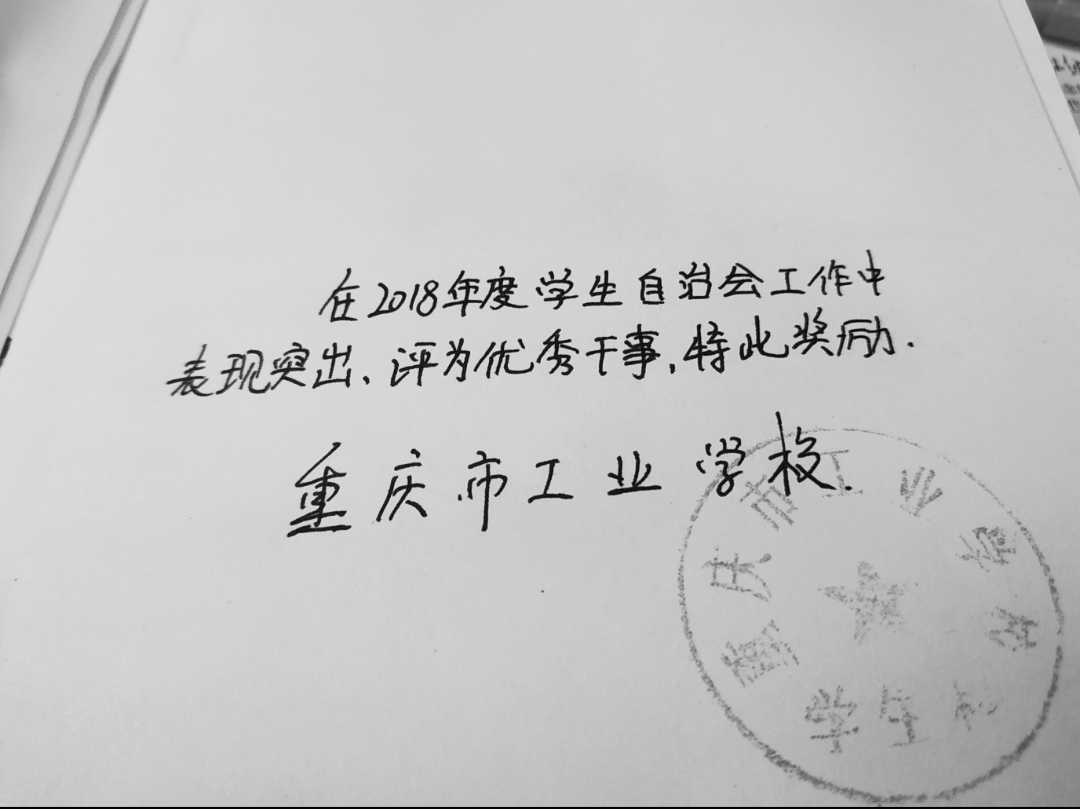 在2018年度学生自治会工作中
表现突出、评为优秀干事,特此奖励.
重庆市工业学校.
重庆市工业
学生